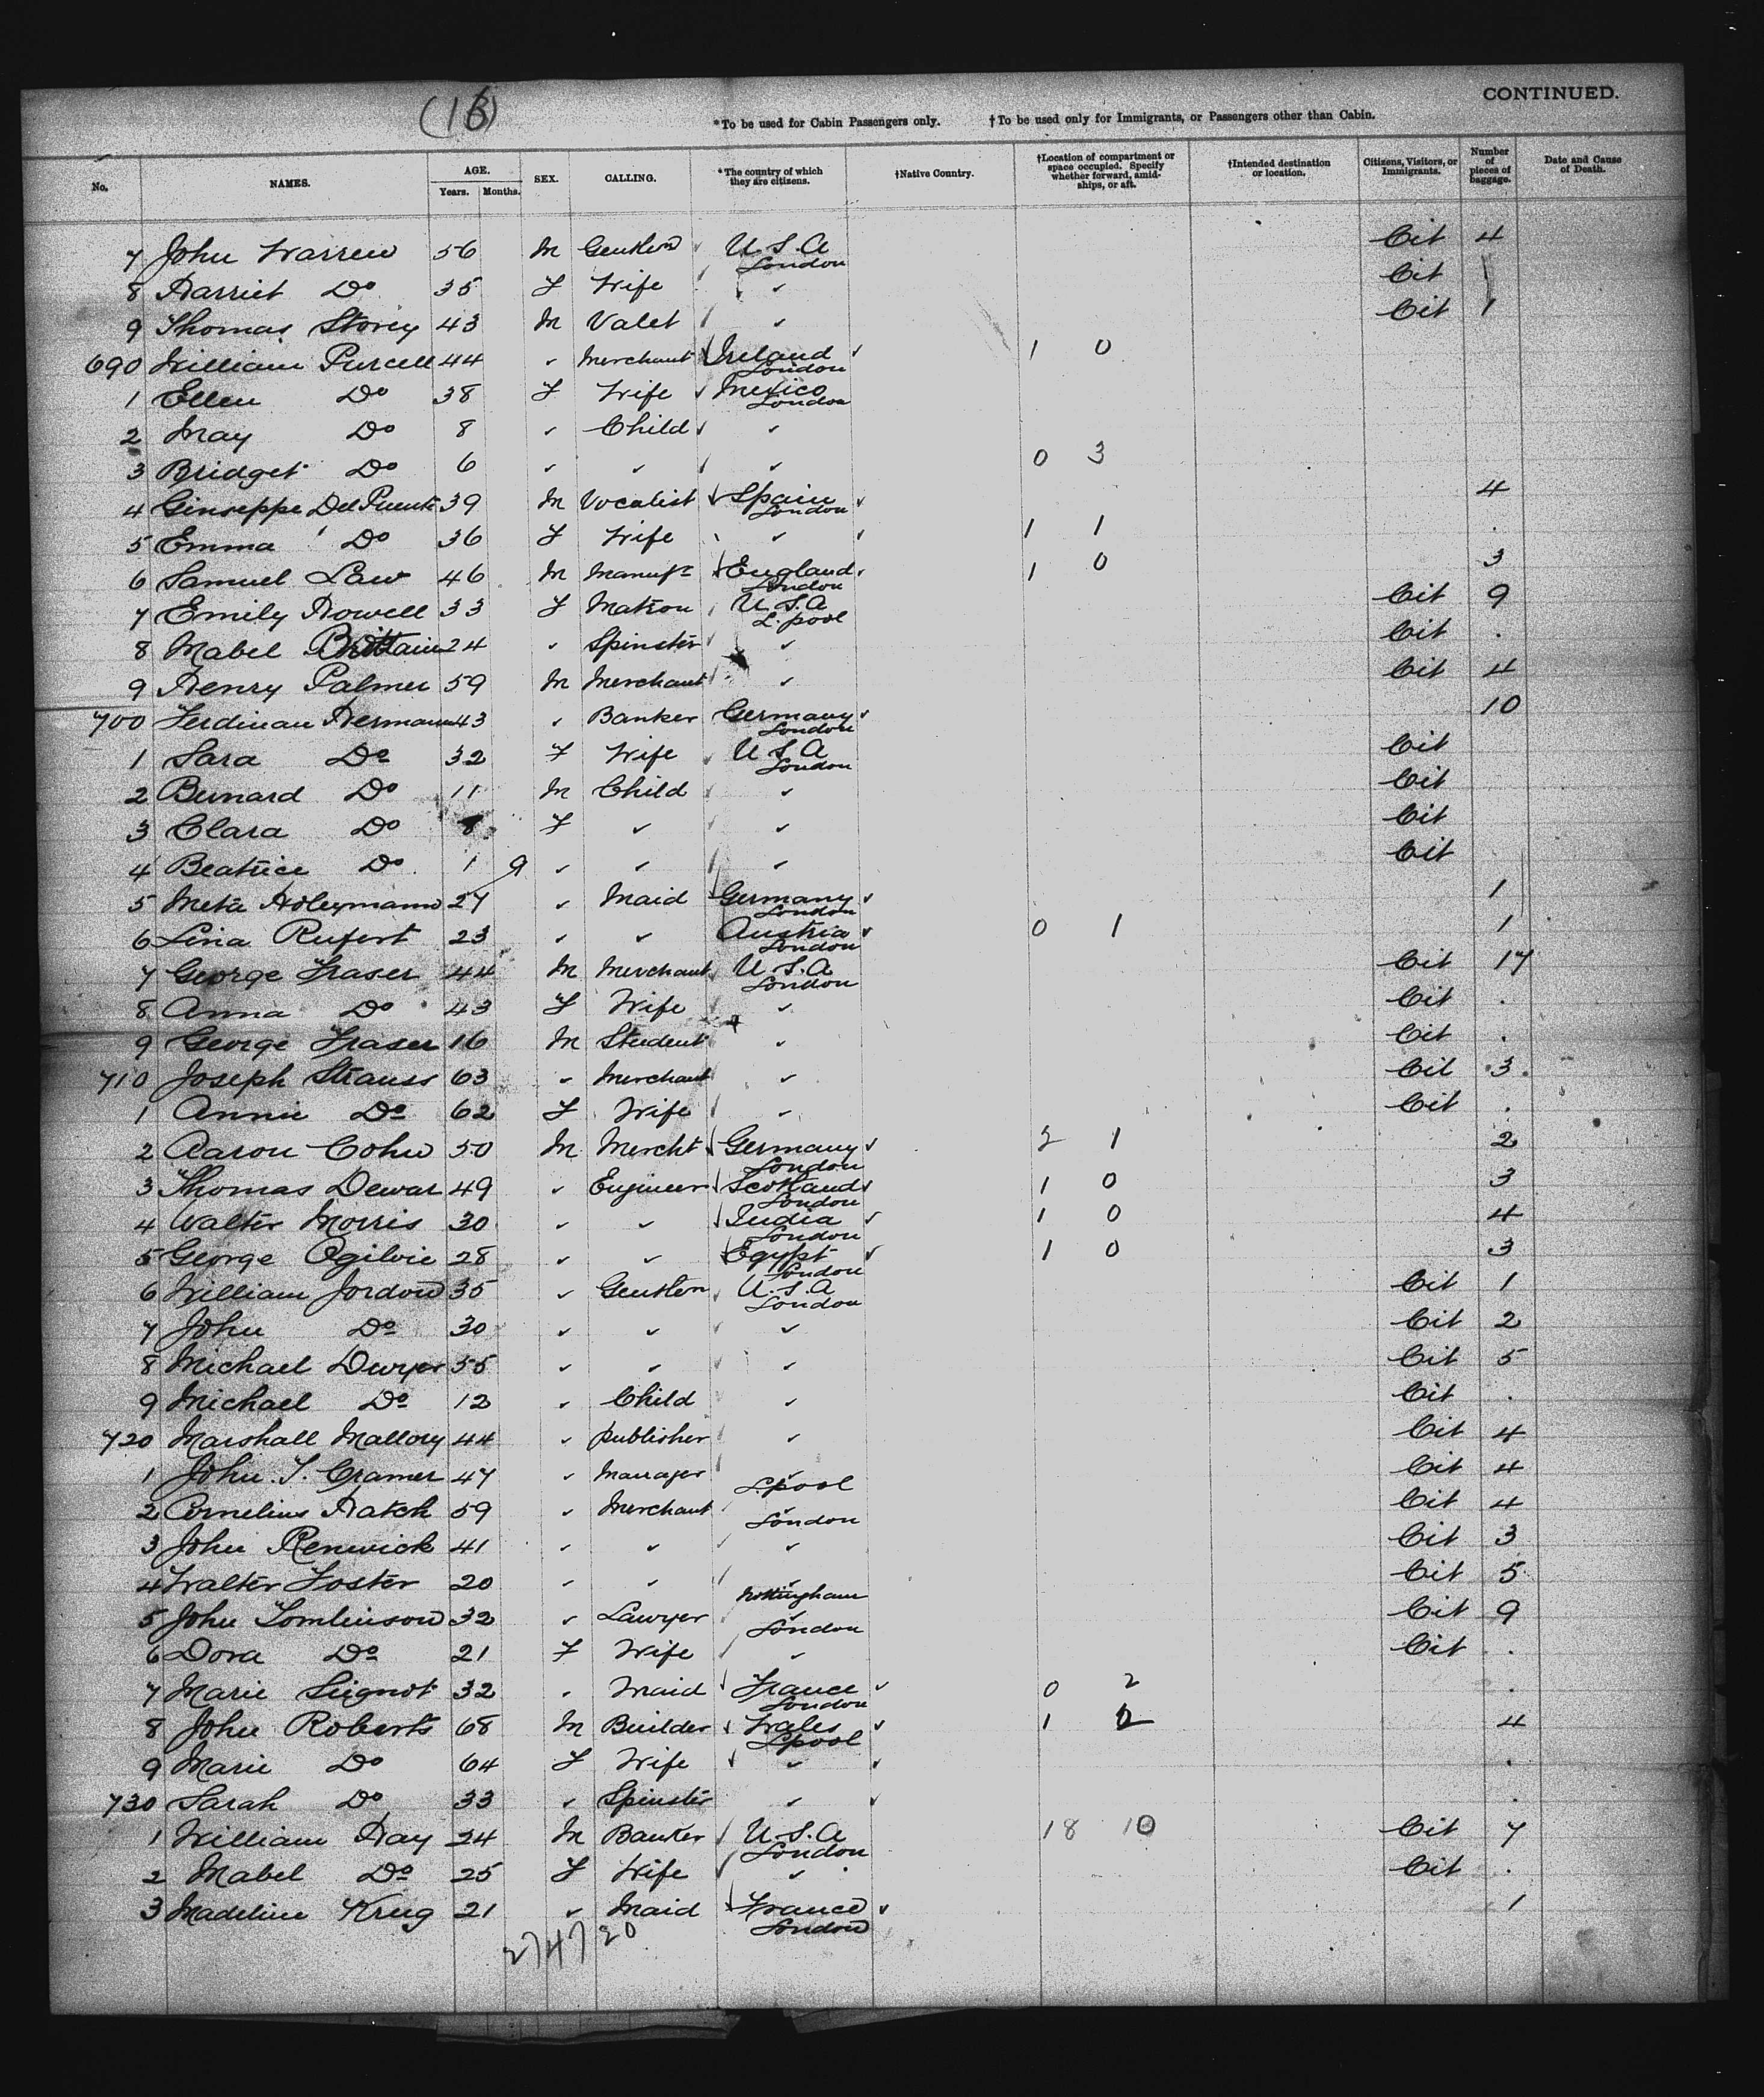 (16)
CONTINUED.
*To be used for Cabin Passengers only. †To be used only for Immigrants, or Passengers other than Cabin.
No. NAMES. AGE. Years. Months. SEX. CALLING. *The country of which they are citizens. †Native Country. †Location of compartment or space occupied. Specify whether forward, amidships, or aft. †Intended destination or location. Citizens, Visitors, or Immigrants. Number of pieces of baggage. Date and Cause of Death.
7 John Warren 56 M Gentlen U.S.A London Cit 4
8 Harriet Do 35 F Wife ✓ Cit
9 Thomas Storey 43 M Valet ✓ Cit 1
690 William Purcell 44 ✓ Merchant Ireland London 1 0
1 Ellen Do 38 F Wife Mexico London
2 May Do 8 ✓ Child ✓
3 Bridget Do 6 ✓ ✓ ✓ 0 3
4 Ginseppe Del Puente 39 M Vocalist Spain London 4
5 Emma Do 36 F Wife ✓ 1 1
6 Samuel Law 46 M Manufr England London 1 0 3
7 Emily Howell 33 F Matron U.S.A L.pool Cit 9
8 Mabel Brittain 24 ✓ Spinster ✓ Cit .
9 Henry Palmer 59 M Merchant ✓ Cit 4
700 Ferdinan Hermann 43 ✓ Banker Germany London 10
1 Sara Do 32 F Wife U S A London Cit
2 Bernard Do 11 M Child ✓ Cit
3 Clara Do 8 F ✓ ✓ Cit
4 Beatrice Do 1 9 ✓ ✓ ✓ Cit
5 Meta 27 ✓ Maid Germany London 1
6 Lina Rufert 23 ✓ ✓ Austria London 0 1 1
7 George Fraser 44 M Merchant U.S.A London Cit 17
8 Anna Do 43 F Wife ✓ Cit .
9 George Fraser 16 M Student ✓ Cit .
710 Joseph Strauss 63 ✓ Merchant ✓ Cit 3
1 Annie Do 62 F Wife ✓ Cit .
2 Aaron Cohn 50 M Mercht Germany London 2 1 2
3 Thomas Dewar 49 ✓ Engineer Scotland London 1 0 3
4 Walter Morris 30 ✓ ✓ India London 1 0 4
5 George Ogilvie 28 ✓ ✓ Egypt London 1 0 3
6 William Jordon 35 ✓ Gentlen U.S.A London Cit 1
7 John Do 30 ✓ ✓ ✓ Cit 2
8 Michael Dwyer 55 ✓ ✓ ✓ Cit 5
9 Michael Do 12 ✓ Child ✓ Cit .
720 Marshall Mallory 44 ✓ Publisher ✓ Cit 4
1 John T. Cramer 47 ✓ Manager ✓ Lpool Cit 4
2 Cornelius Hatch 59 ✓ Merchant ✓ London Cit 4
3 John Renwick 41 ✓ ✓ ✓ Cit 3
4 Walter Foster 20 ✓ ✓ ✓ Nottingham Cit 5
5 John Tomlinson 32 ✓ Lawyer ✓ London Cit 9
6 Dora Do 21 F Wife ✓ Cit .
7 Marie 32 ✓ Maid France London 0 2 .
8 John Roberts 68 M Builder Wales Lpool 1 2 4
9 Marie Do 64 F Wife ✓ .
730 Sarah Do 33 ✓ Spinster ✓ .
1 William Hay 24 M Banker U.S.A London 18 10 Cit 7
2 Mabel Do 25 F Wife ✓ Cit .
3 Madeline Krug 21 ✓ Maid France London 1
27 47 20